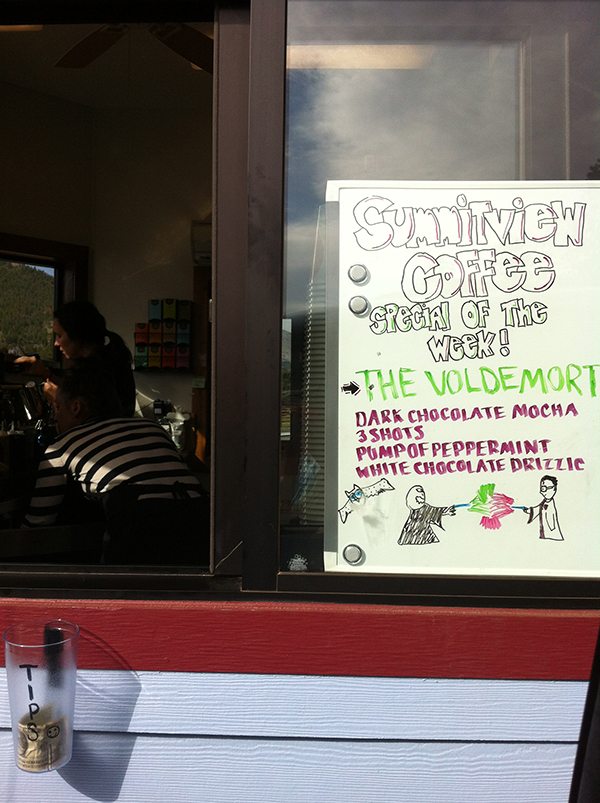 SUMMITVIEW
COFFEE
SPECIAL OF THE
WEEK!
THE VOLDEMORT
DARK CHOCOLATE MOCHA
3 SHOTS
PUMP OF PEPPERMINT
WHITE CHOCOLATE DRIZZLE
TIPS